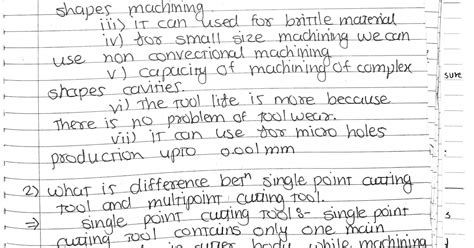 shapes machining
iii) IT can used for brittle material
iv) for small size machining we can
use non convectional machining
v) capacity of machining of complex
shapes cavities.
vi) The tool life is more because
there is no problem of tool wear.
vii) it can use for micro holes
production upto 0.001 mm
2) what is difference betn single point cutting
tool and multipoint cutting tool.
⇒ single point cutting tools :- single point
cutting tool contains only one main
body while machining
sure
s